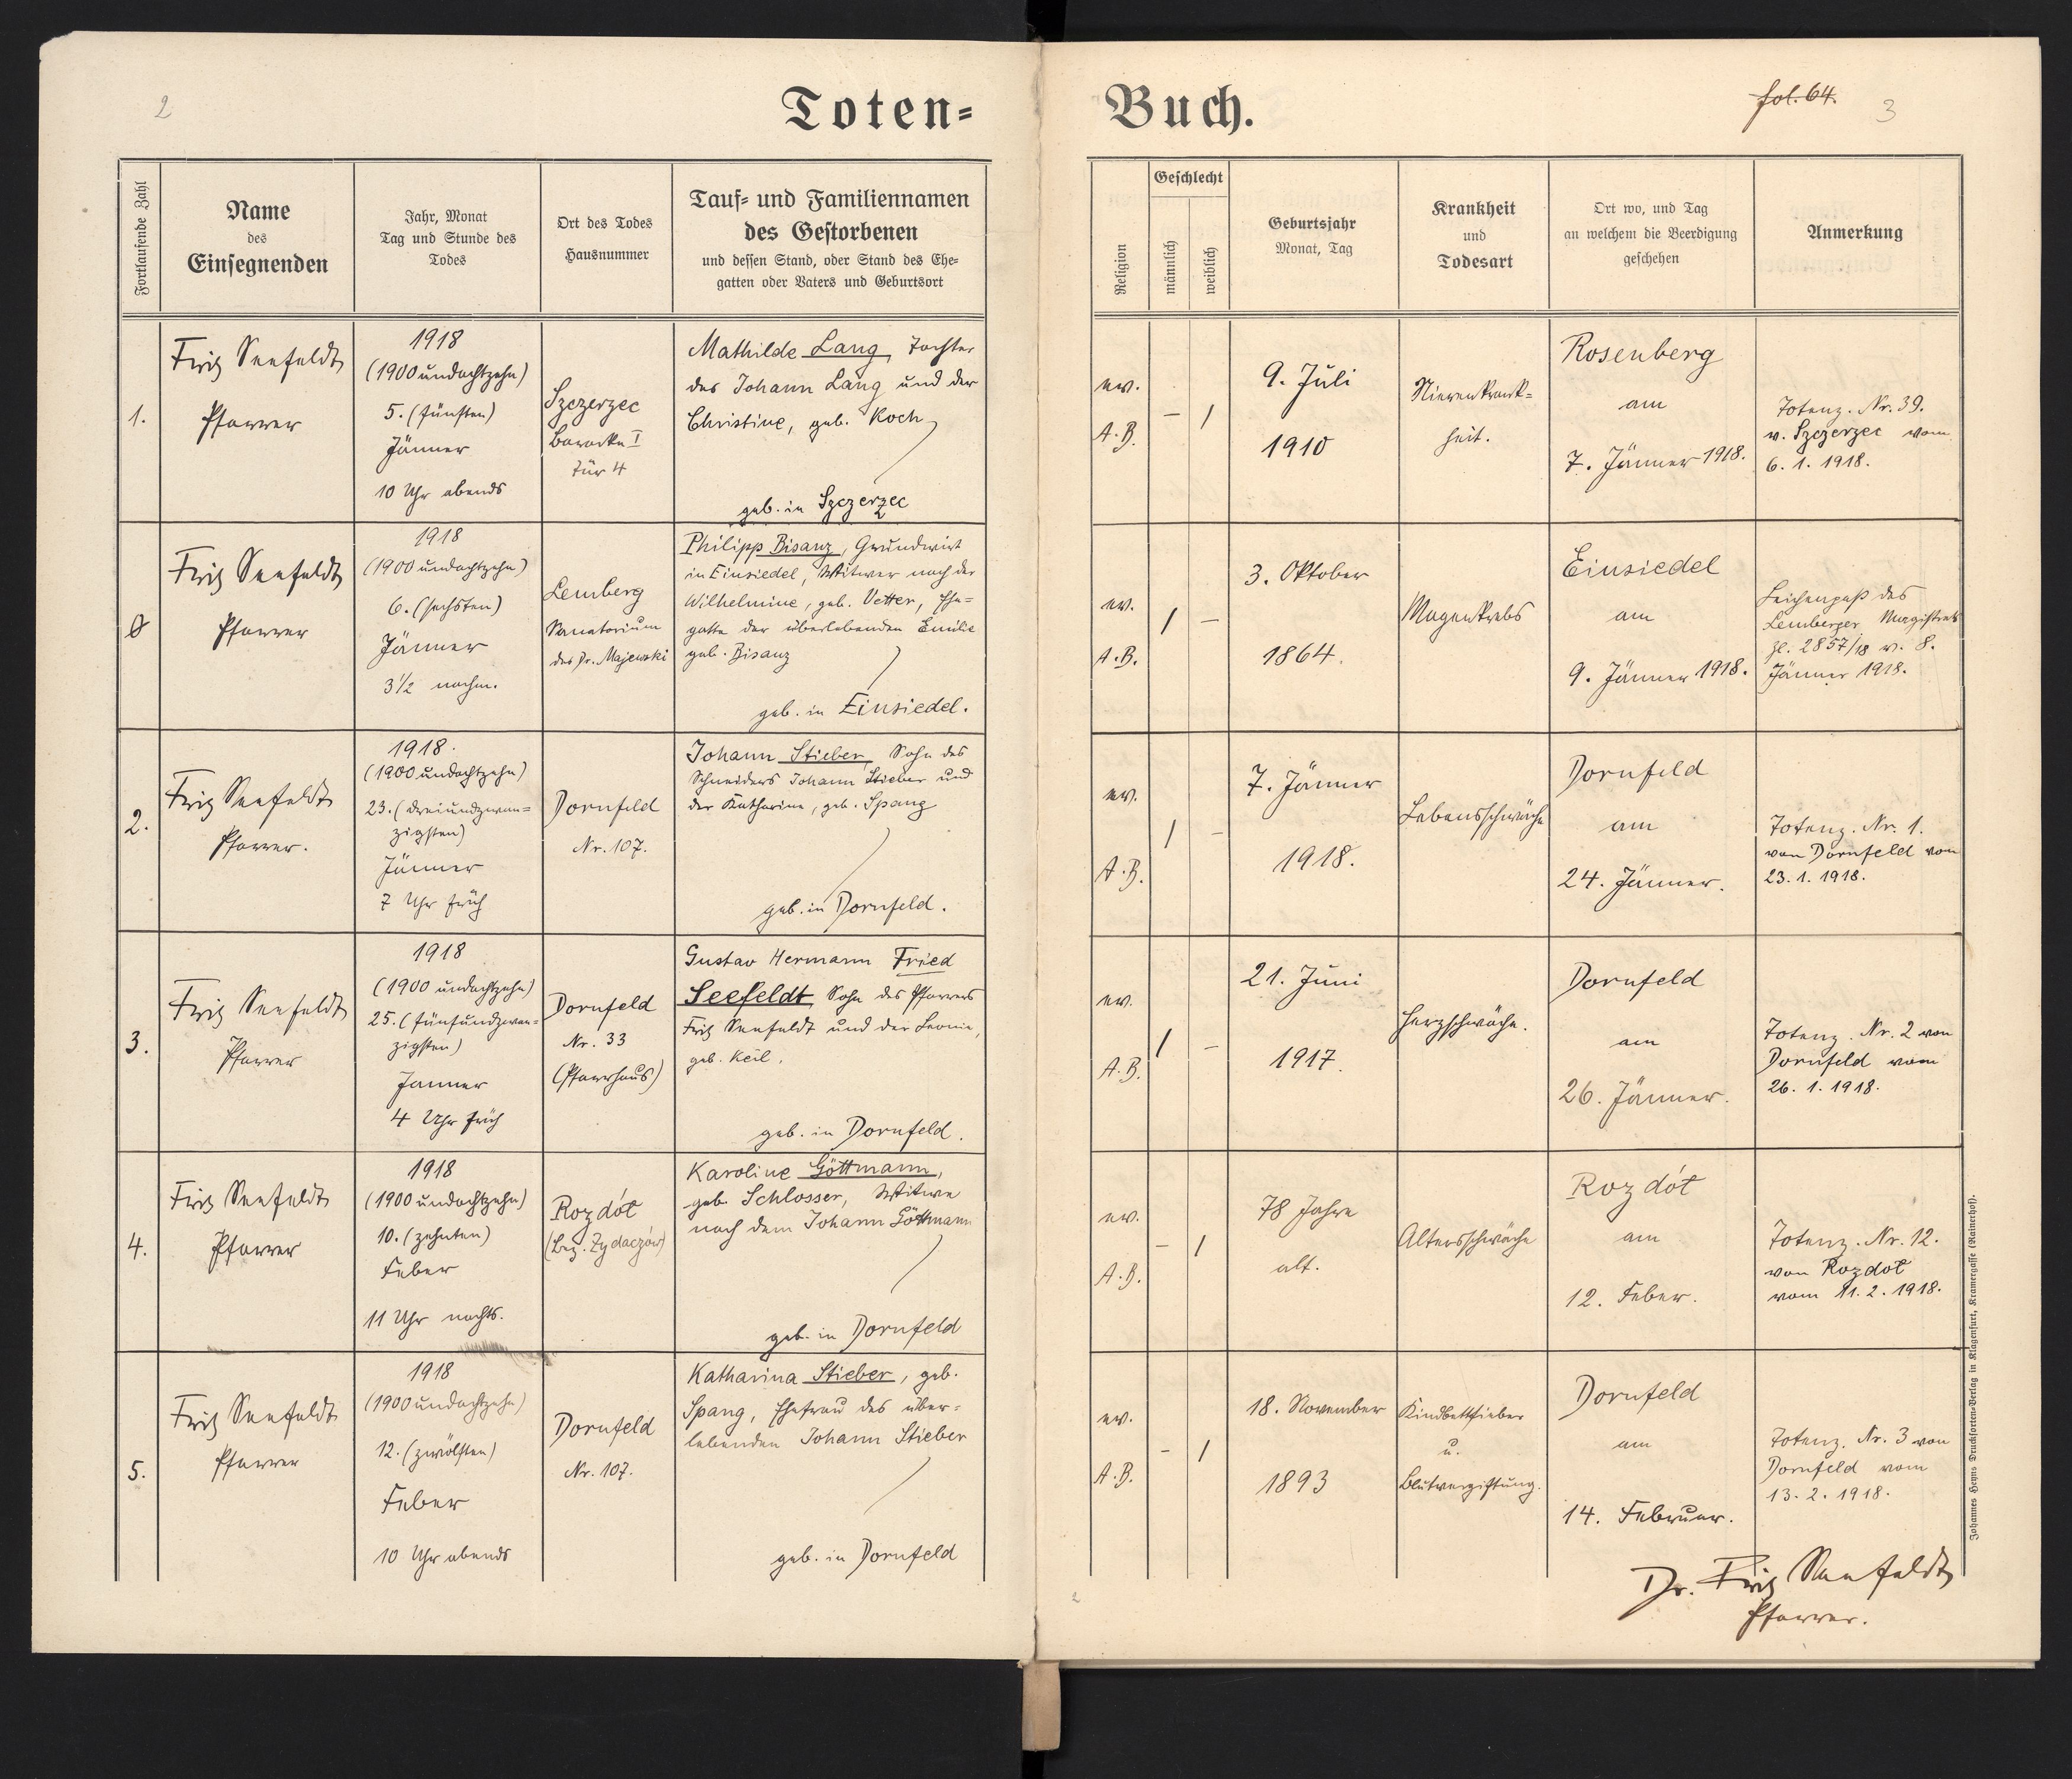 2
Toten-
Buch.
fol. 64.
3
Fortlaufende Zahl
Name
des
Einsegnenden
Jahr, Monat
Tag und Stunde des
Todes
Ort des Todes
Hausnummer
Tauf- und Familiennamen
des Gestorbenen
und dessen Stand, oder Stand des Ehe-
gatten oder Vaters und Geburtsort
Religion
Geschlecht
männlich
weiblich
Geburtsjahr
Monat, Tag
Krankheit
und
Todesart
Ort wo, und Tag
an welchem die Beerdigung
geschehen
Anmerkung
1.
Fritz Seefeldt
Pfarrer
1918
(1900 undachtzehn)
5. (fünften)
Jänner
10 Uhr abends
Szczerzec
Baracke I
Tür 4
Mathilde Lang, Tochter
des Johann Lang und der
Christine, geb. Koch
geb. in Szczerzec
ev.
A.B.
–
/
9. Juli
1910
Nierenkrank-
heit.
Rosenberg
am
7. Jänner 1918.
Totenz. Nr. 39.
v. Szczerzec vom
6. 1. 1918.
0
Fritz Seefeldt
Pfarrer
1918
(1900 undachtzehn)
6. (sechsten)
Jänner
3½ nachm.
Lemberg
Sanatorium
des Dr. Majewski
Philipp Bisanz, Grundwirt
in Einsiedel, Witwer nach der
Wilhelmine, geb. Vetter, Ehe-
gatte der überlebenden Emilie
geb. Bisanz
geb. in Einsiedel.
ev.
A.B.
/
–
3. Oktober
1864.
Magenkrebs
Einsiedel
am
9. Jänner 1918.
Leichenpaß des
Lemberger Magistrats
Zl. 2857/18 v. 8.
Jänner 1918.
2.
Fritz Seefeldt
Pfarrer.
1918.
(1900 undachtzehn)
23. (dreiundzwan-
zigsten)
Jänner
7 Uhr früh
Dornfeld
Nr. 107.
Johann Stieber, Sohn des
Schneiders Johann Stieber und
der Katharina, geb. Spang
geb. in Dornfeld.
ev.
A.B.
/
–
7. Jänner
1918.
Lebensschwäche
Dornfeld
am
24. Jänner.
Totenz. Nr. 1.
von Dornfeld von
23. 1. 1918.
3.
Fritz Seefeldt
Pfarrer
1918
(1900 undachtzehn)
25. (fünfundzwan-
zigsten)
Janner
4 Uhr früh
Dornfeld
Nr. 33
(Pfarrhaus)
Gustav Hermann Fried
Seefeldt Sohn des Pfarrers
Fritz Seefeldt und der Leonie,
geb. Keil.
geb. in Dornfeld.
ev.
A.B.
/
–
21. Juni
1917.
Herzschwäche.
Dornfeld
am
26. Jänner.
Totenz. Nr. 2 von
Dornfeld vom
26. 1. 1918.
4.
Fritz Seefeldt
Pfarrer
1918
(1900 undachtzehn)
10. (zehnten)
Feber
11 Uhr nachts.
Rozdół
(Bez. Zydaczów)
Karoline Göttmann,
geb. Schlosser, Witwe
nach dem Johann Göttmann
geb. in Dornfeld
ev.
A.B.
–
/
78 Jahre
alt.
Altersschwäche
Rozdół
am
12. Feber.
Totenz. Nr. 12.
von Rozdół
vom 11. 2. 1918.
5.
Fritz Seefeldt
Pfarrer
1918
(1900 undachtzehn)
12. (zwölften)
Feber
10 Uhr abends
Dornfeld
Nr. 107.
Katharina Stieber, geb.
Spang, Ehefrau des über-
lebenden Johann Stieber
geb. in Dornfeld
ev.
A.B.
–
/
18. November
1893
Kindbettfieber
u.
Blutvergiftung.
Dornfeld
am
14. Februar.
Totenz. Nr. 3 von
Dornfeld vom
13. 2. 1918.
Dr. Fritz Seefeldt
Pfarrer.
2
Johannes Heyns Drucksorten-Verlag in Klagenfurt, Kramergasse (Rainerhof).